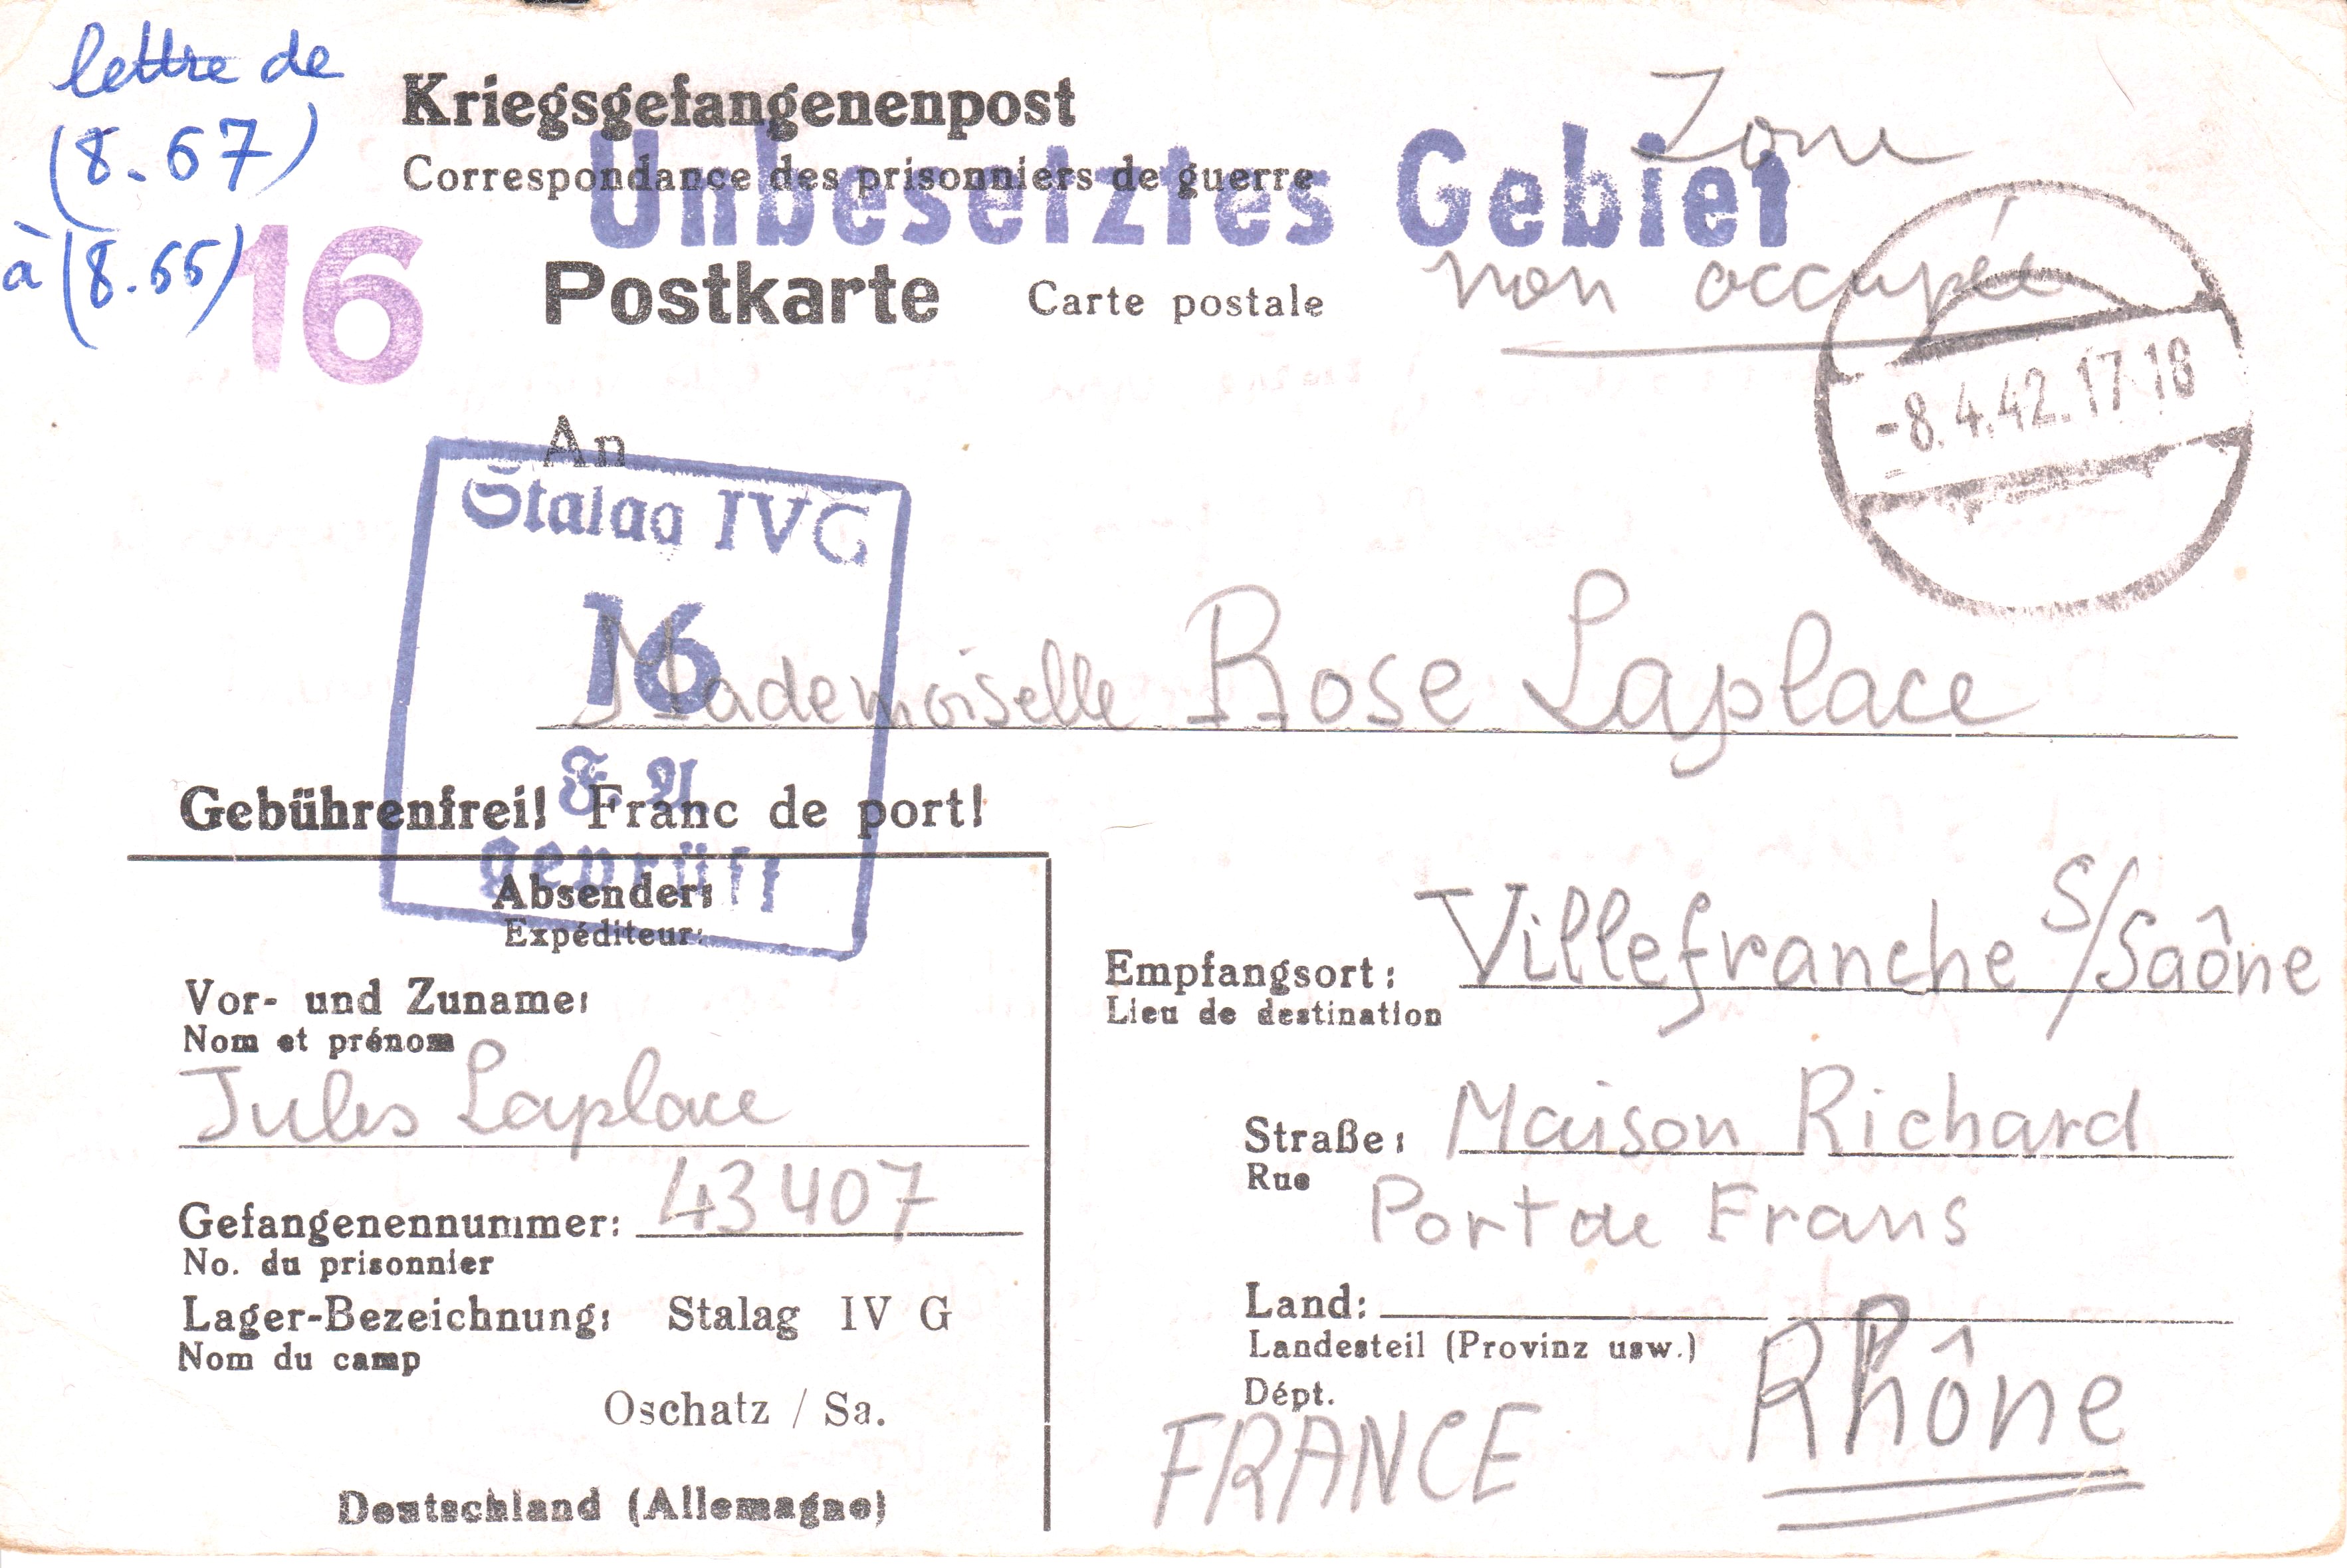 lettre de
(8.67)
à (8.66)
16
Kriegsgefangenenpost
Correspondance des prisonniers de guerre
Unbesetztes Gebiet
Zone
non occupée
Postkarte Carte postale
-8.4.42.17-18
An
Stalag IVG
16
F. A
geprüft
Mademoiselle Rose Laplace
Gebührenfrei! Franc de port!
Absender:
Expéditeur:
Vor- und Zuname:
Nom et prénom
Jules Laplace
Gefangenennummer: 43407
No. du prisonnier
Lager-Bezeichnung: Stalag IV G
Nom du camp
Oschatz / Sa.
Deutschland (Allemagne)
Empfangsort: Villefranche s/Saône
Lieu de destination
Straße: Maison Richard
Rue
Port de Frans
Land:
Landesteil (Provinz usw.)
Dépt.
Rhône
FRANCE